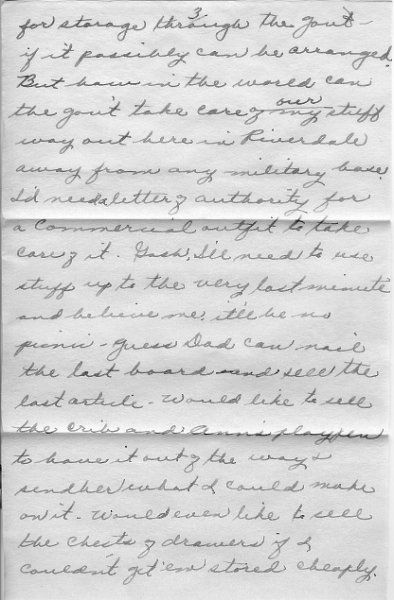 3
for storage through the gov't –
if it possibly can be arranged.
But how in the world can
the gov't take care of my our stuff
way out here in Riverdale
away from any military base.
I'd need a letter of authority for
a commercial outfit to take
care of it. Gosh, I'll need to use
stuff up to the very last minute
and believe me, it'll be no
picnic – guess Dad can nail
the last board and sell the
last article. Would like to sell
the crib and Ann's playpen
to have it out of the way &
send her what I could make
on it. Would even like to sell
the chests of drawers if I
couldn't get 'em stored cheaply.